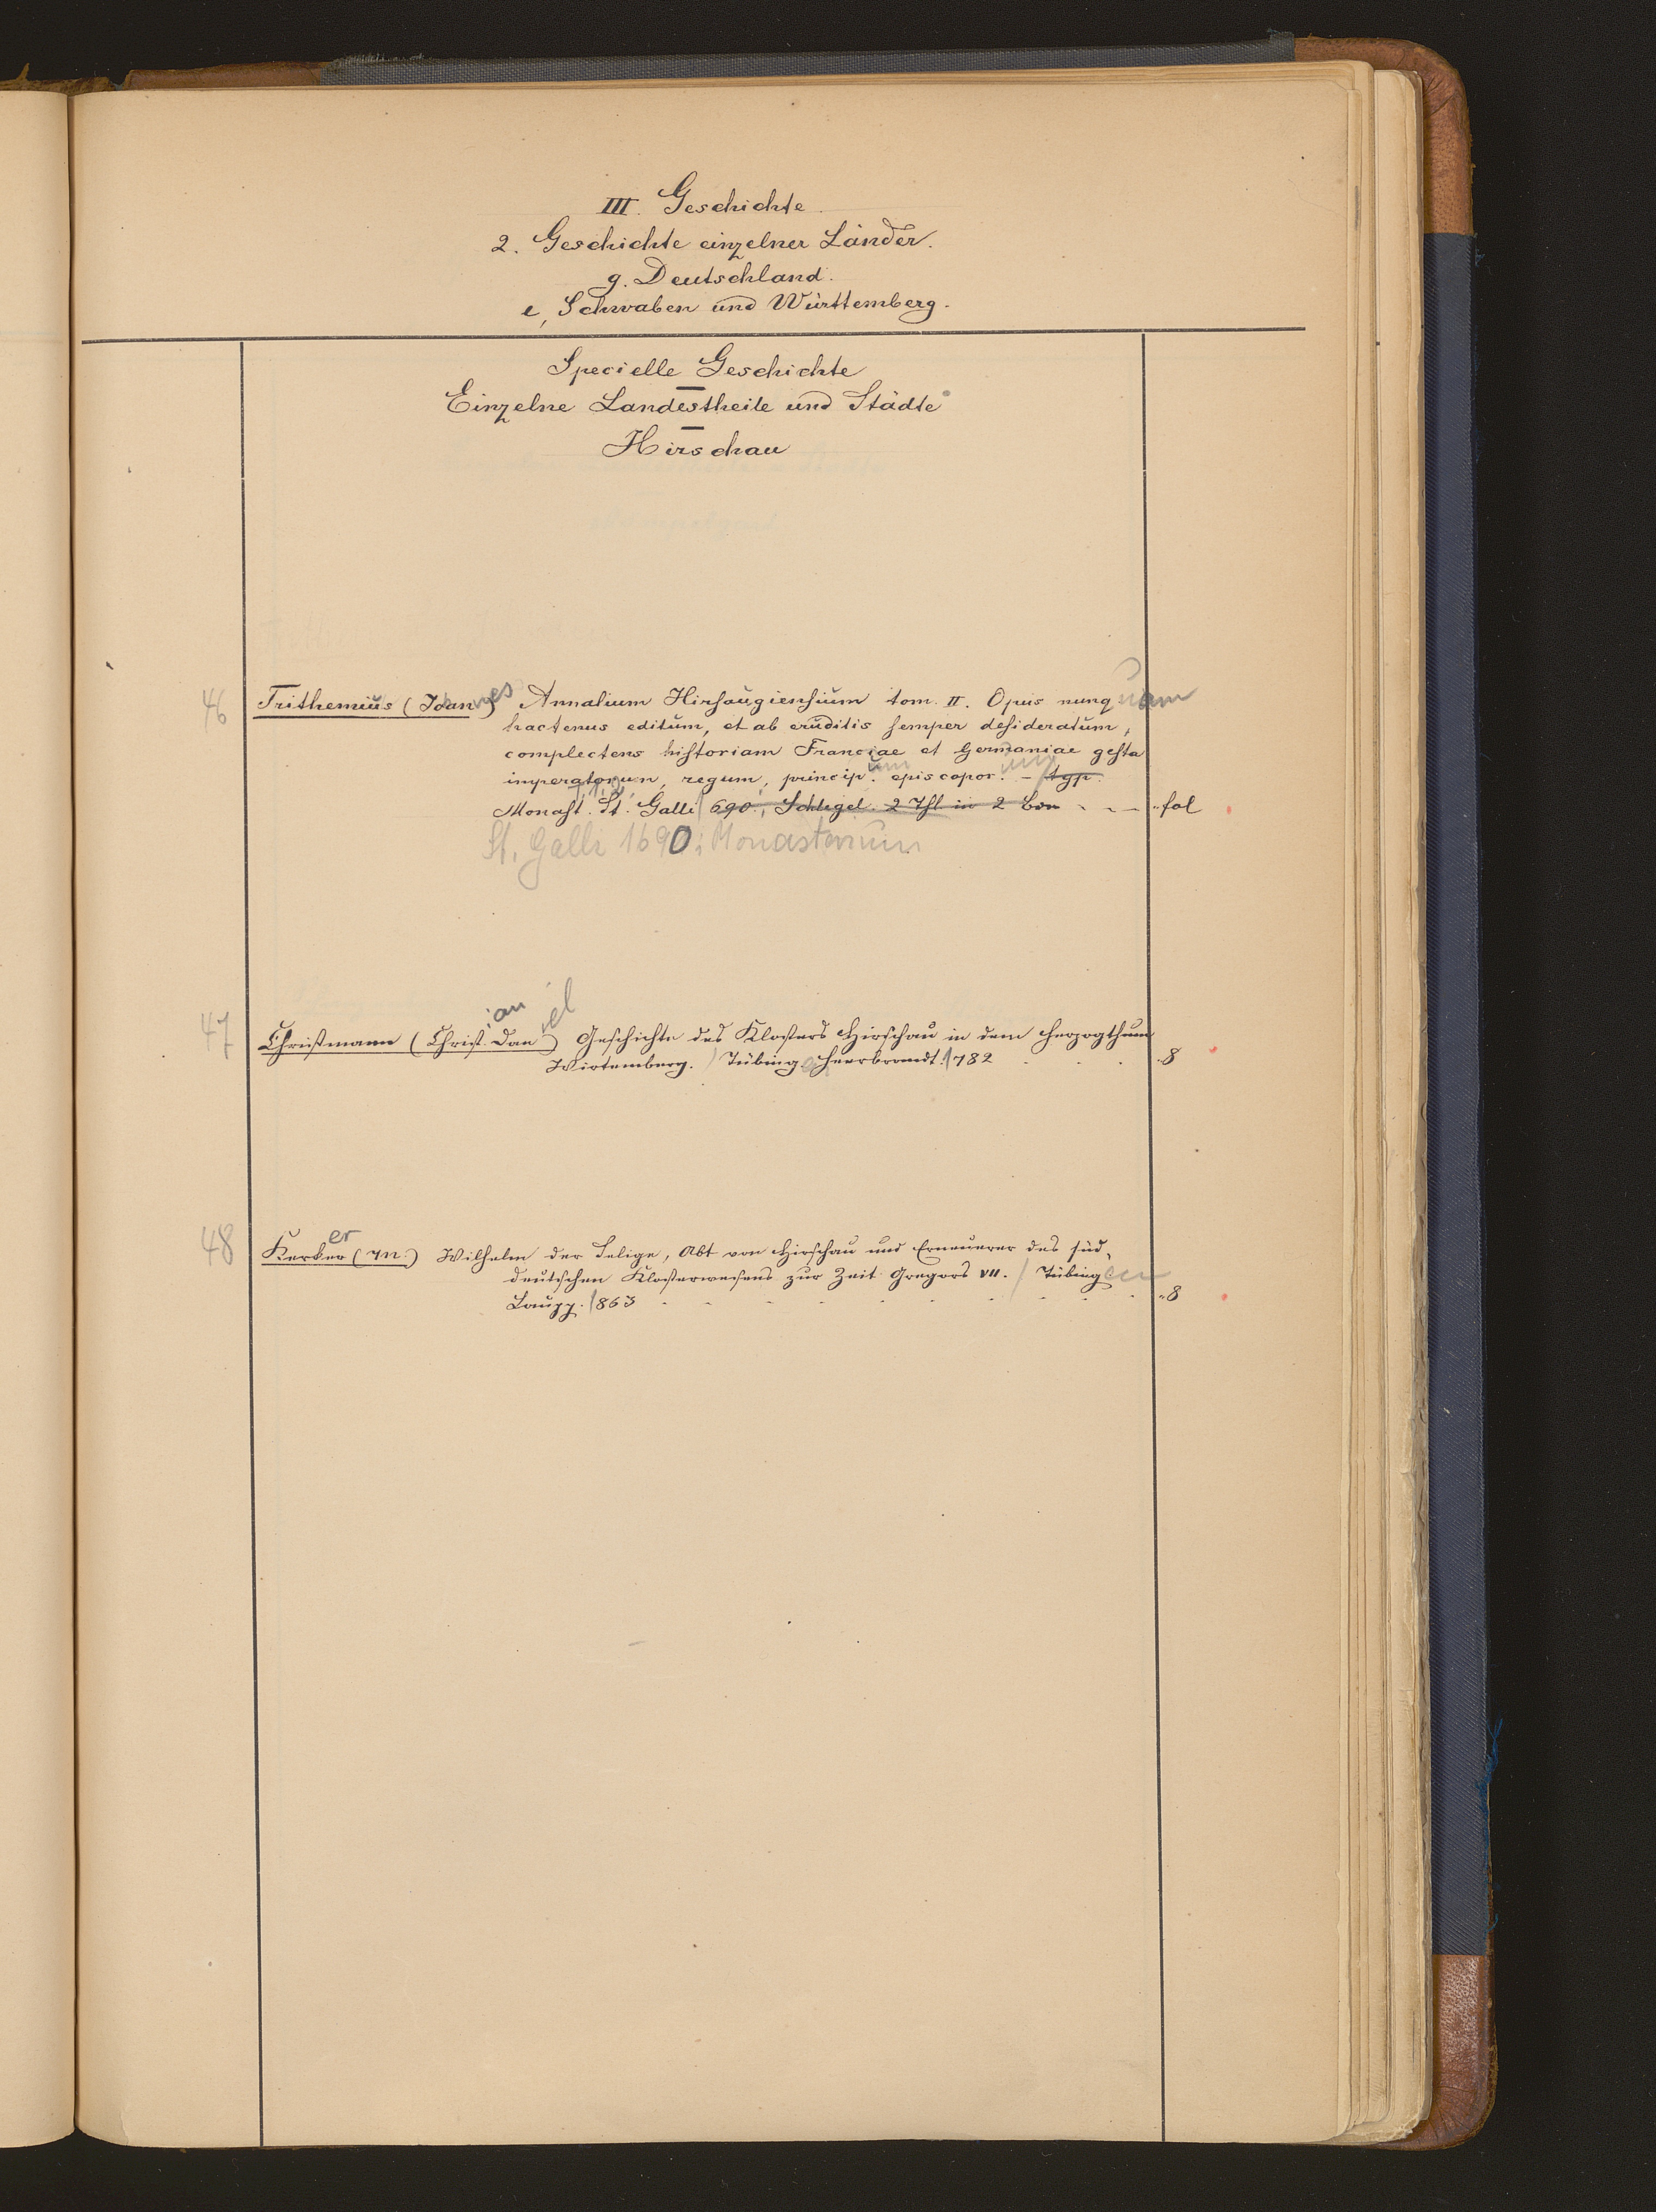 III. Geschichte.
2. Geschichte einzelner Länder.
g. Deutschland.
e, Schwaben und Württemberg.
Specielle Geschichte
Einzelne Landestheile und Städte
Hirschau
46 Trithemius (Joannes) Annalium Hirsaugiensium tom. II. Opus nunquam
hactenus editum, et ab eruditis semper desideratum,
complectens historiam Franciae et Germaniae gesta
imperatorum, regum, principum episcoporum. – typ.
Monast. St. Galli 690., Schlegel. 2 Thl. in 2 Bdn - - - "fol
St. Galli 1690; Monasterium
47 Christmann (Christian Daniel) Geschichte des Klosters Hirschau in dem Herzogthum
Wirtemberg. Tübingen Heerbrandt. 1782 . . . "8
48 Kerker (M.) Wilhelm der Selige, Abt von Hirschau und Erneuerer des süd-
deutschen Klosterwesens zur Zeit Gregors VII. / Tübingen
Laupp. 1863 - - - - - - - - - "8